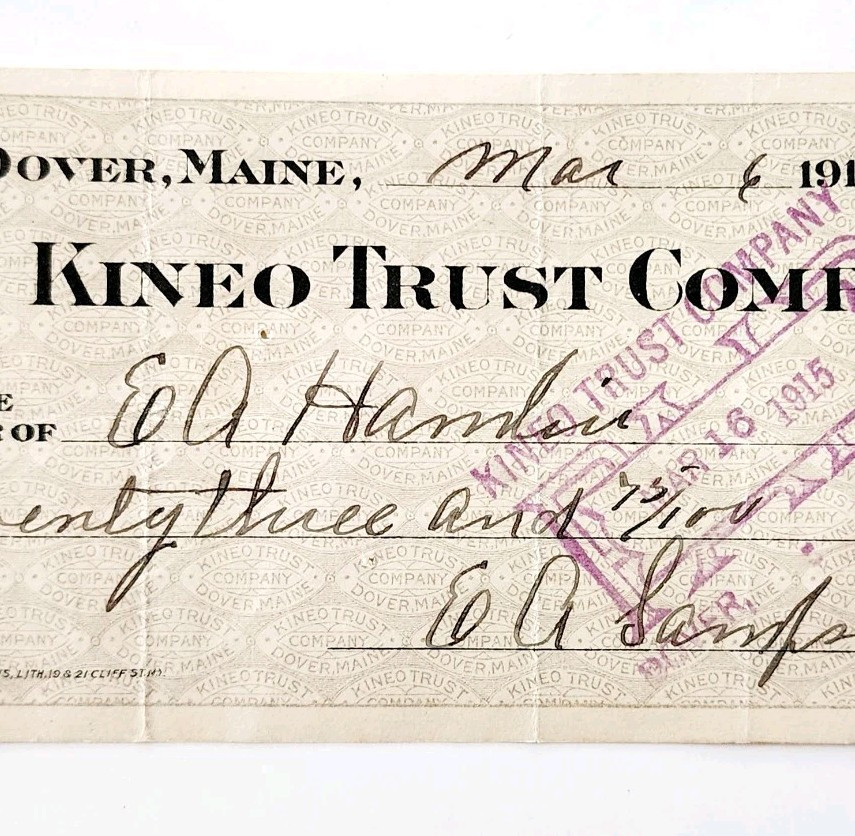 DOVER, MAINE, Mar 6 191
KINEO TRUST COMP
E
R OF E A Hamlin
entythree and 75/100
E A Samps
S, LITH. 19 & 21 CLIFF ST. N.Y.
KINEO TRUST COMPANY
PAID
MAR 16 1915
DOVER,
KINEO TRUST COMPANY DOVER, MAINE